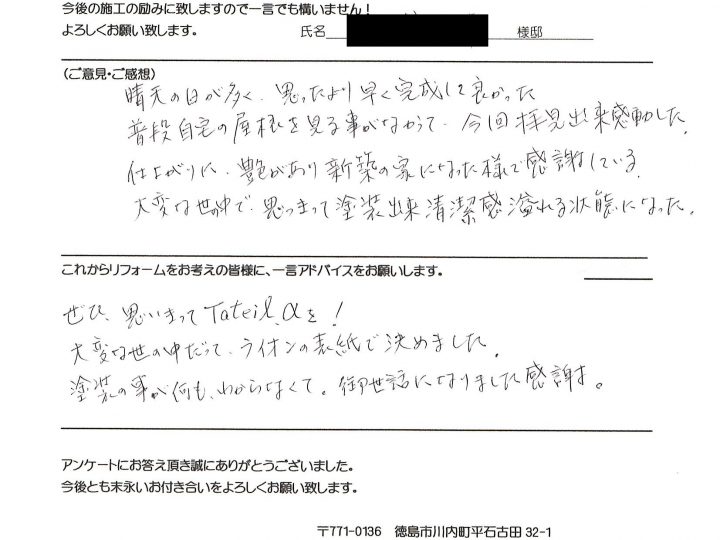 今後の施工の励みに致しますので一言でも構いません！
よろしくお願い致します。 氏名 様邸
（ご意見・ご感想）
晴天の日が多く、思ったより早く完成して良かった
普段自宅の屋根を見る事がなかって、今回拝見出来感動した。
仕上がりに、艶があり新築の家になった様で感謝している。
大変な世の中で、思いきって塗装出来清潔感溢れる状態になった。
これからリフォームをお考えの皆様に、一言アドバイスをお願いします。
ぜひ、思いきってTateil.αを！
大変な世の中だって、ライオンの表紙で決めました。
塗装の事が何も、わからなくて。御世話になりました感謝す。
アンケートにお答え頂き誠にありがとうございました。
今後とも末永いお付き合いをよろしくお願い致します。
〒771-0136 徳島市川内町平石古田 32-1